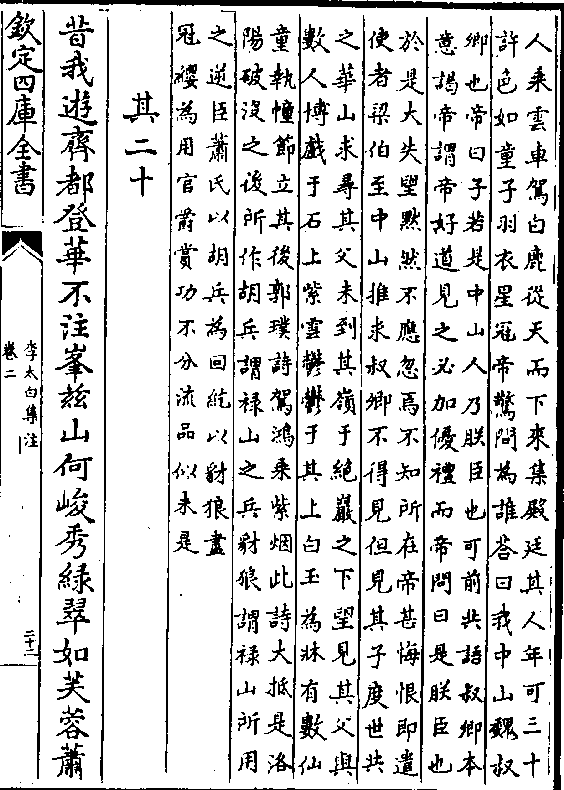 人乘雲車駕白鹿從天而下來集殿廷其人年可三十
許色如童子羽衣星冠帝驚問為誰答曰我中山魏叔
卿也帝曰子若是中山人乃朕臣也可前共語叔卿本
意謁帝謂帝好道見之必加優禮而帝問曰是朕臣也
於是大失望黙然不應忽焉不知所在帝甚悔恨即遣
使者梁伯至中山推求叔卿不得見但見其子度世共
之華山求尋其父未到其嶺于絶巖之下望見其父與
數人博戲于石上紫雲鬱鬱于其上白玉為牀有數仙
童執幢節立其後郭璞詩駕鴻乘紫烟此詩大抵是洛
陽破沒之後所作胡兵謂禄山之兵豺狼謂禄山所用
之逆臣蕭氏以胡兵為回紇以豺狼盡
冠纓為用官爵賞功不分流品似未是
其二十
昔我遊齊都登華不注峯兹山何峻秀緑翠如芙蓉蕭
欽定四庫全書
李太白集注
卷二
二十二